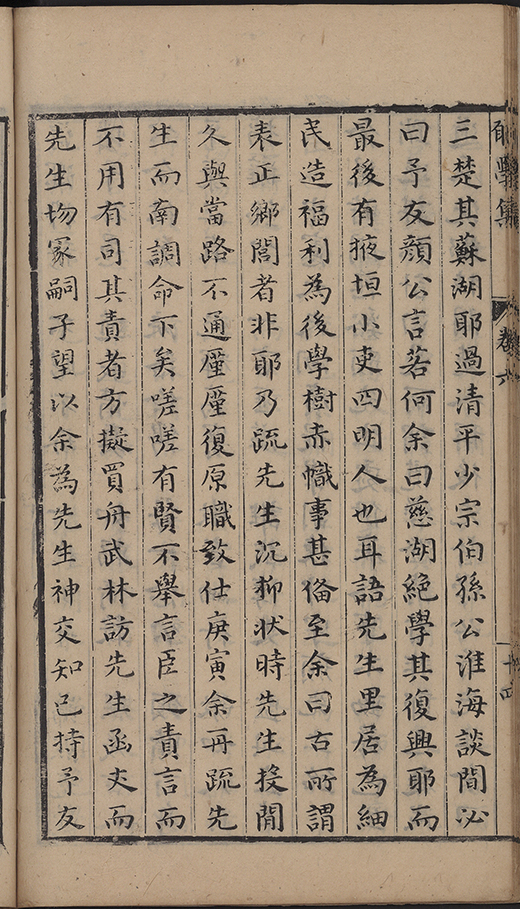 學集
卷六
十四
三楚其蘇湖耶過清平少宗伯孫公淮海談間必
曰予友顔公言若何余曰慈湖絕學其復興耶而
最後有掖垣小吏四明人也耳語先生里居為細
民造福利為後學樹赤幟事甚俻至余曰古所謂
表正鄉閭者非耶乃疏先生沉抑狀時先生投閒
久與當路不通厪厪復原職致仕庚寅余再疏先
生而南調命下矣嗟嗟有賢不舉言臣之責言而
不用有司其責者方擬買舟武林訪先生函丈而
先生物冢嗣子望以余為先生神交知己持予友